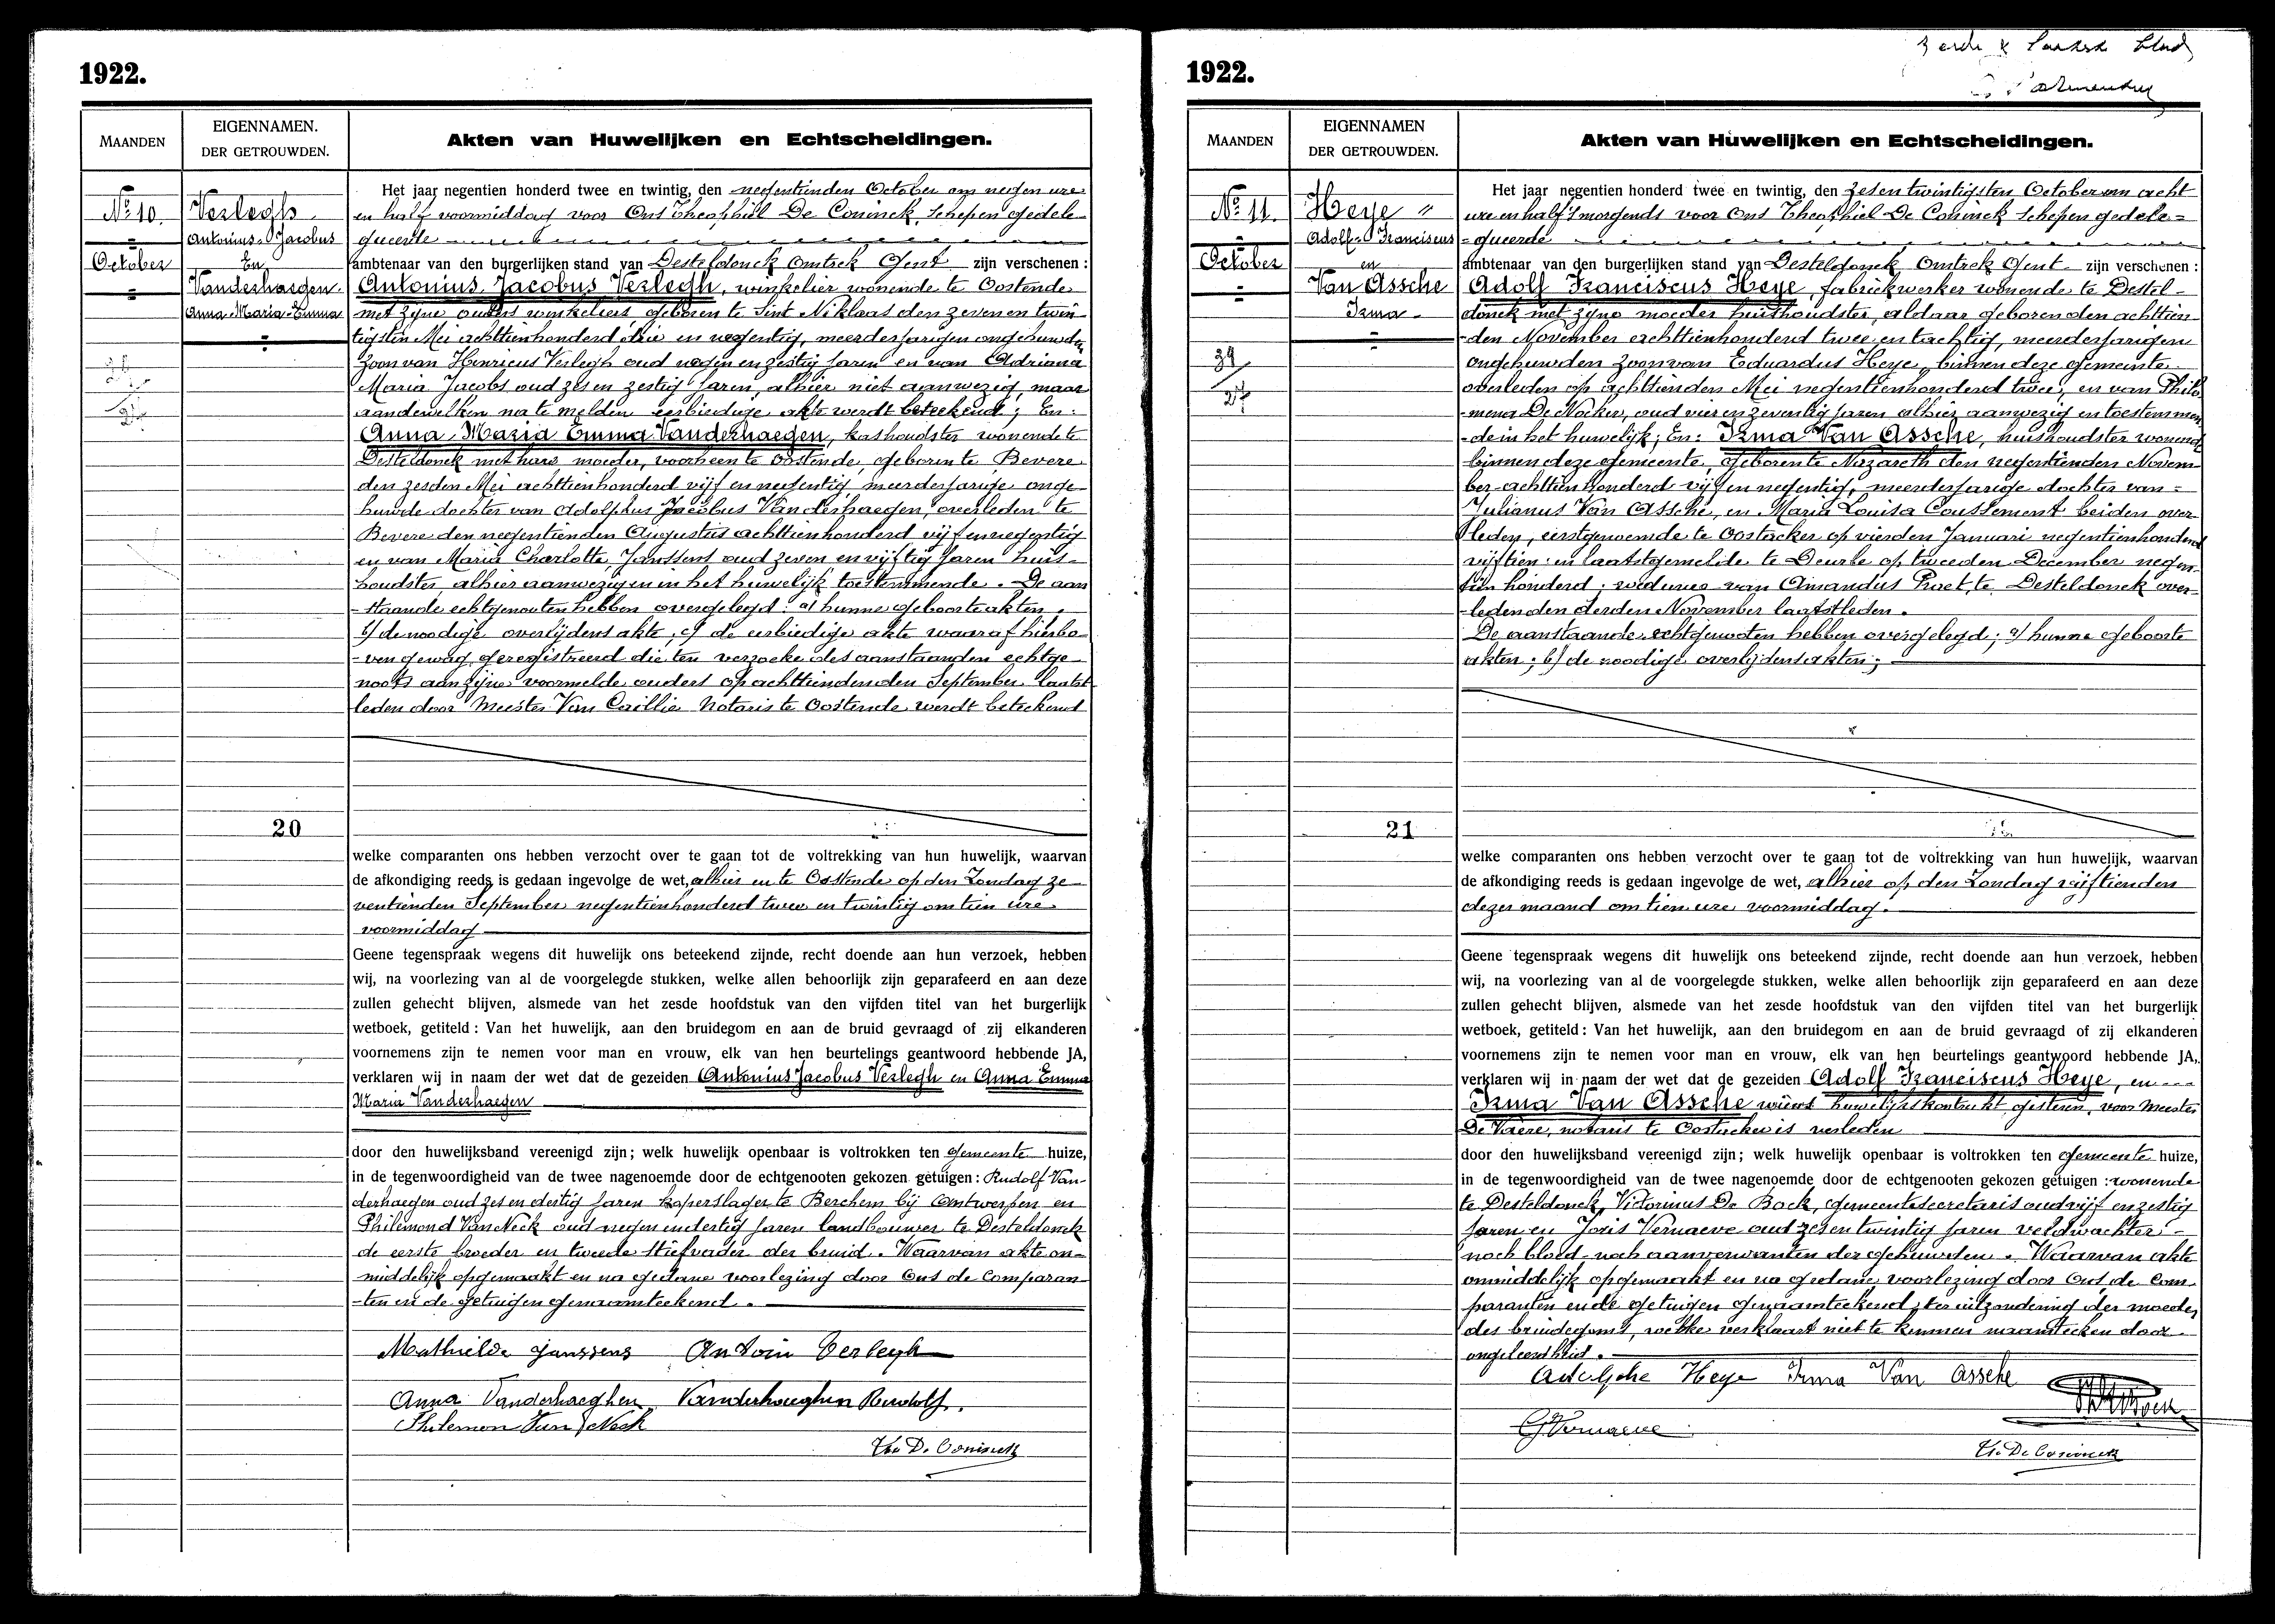 1922.
MAANDEN
EIGENNAMEN.
DER GETROUWDEN.
Akten van Huwelijken en Echtscheidingen.
Nº 10
October
Verlegh
Antonius Jacobus
En
Vanderhaegen
Anna-Maria-Emma
Het jaar negentien honderd twee en twintig, den negentienden October om negen ure
en half voormiddag voor Ons Theophiel De Coninck, schepen gedele-
gueerde
ambtenaar van den burgerlijken stand van Desteldonck omtrek Gent zijn verschenen :
Antonius Jacobus Verlegh, winkelier wonende te Oostende
met zijne ouders winkeliers geboren te Sint Niklaas den zeven en twin
tigsten Mei achttienhonderd drie en negentig, meerderjarigen ongehuwden
zoon van Henricus Verlegh oud negen en zestig jaren en van Adriana
Maria Jacobs oud zes en zestig jaren, alhier niet aanwezig, maar
aan dewelken na te melden eerbiedige akte werdt beteekend ; En :
Anna Maria Emma Vanderhaegen, kashoudster wonende te
Desteldonck met hare moeder, voorheen te Oostende, geboren te Bevere
den zesden Mei achttienhonderd vijf en negentig, meerderjarige onge-
huwde dochter van Adolphus Jacobus Vanderhaegen, overleden te
Bevere den negentienden Augustus achttienhonderd vijf en negentig
en van Maria Charlotta Janssens oud zeven en vijftig jaren huis-
houdster alhier aanwezig en in het huwelijk toestemmende. De aan
-staande echtgenouten hebben overgelegd : a) hunne geboorteakten,
b) de noodige overlijdens akte ; c) de eerbiedige akte waaraf hierbo-
-ven gewag, geregistreerd die ten verzoeke des aanstaanden echtge-
noots aan zijne voormelde ouders op achttienden den September laatst
leden door Meester Van Caillie Notaris te Oostende werdt beteekend
20
welke comparanten ons hebben verzocht over te gaan tot de voltrekking van hun huwelijk, waarvan
de afkondiging reeds is gedaan ingevolge de wet, alhier en te Oostende op den Zondag ze-
ventienden September negentienhonderd twee en twintig om tien ure
voormiddag
Geene tegenspraak wegens dit huwelijk ons beteekend zijnde, recht doende aan hun verzoek, hebben
wij, na voorlezing van al de voorgelegde stukken, welke allen behoorlijk zijn geparafeerd en aan deze
zullen gehecht blijven, alsmede van het zesde hoofdstuk van den vijfden titel van het burgerlijk
wetboek, getiteld : Van het huwelijk, aan den bruidegom en aan de bruid gevraagd of zij elkanderen
voornemens zijn te nemen voor man en vrouw, elk van hen beurtelings geantwoord hebbende JA,
verklaren wij in naam der wet dat de gezeiden Antonius Jacobus Verlegh en Anna Emma
Maria Vanderhaegen
door den huwelijksband vereenigd zijn ; welk huwelijk openbaar is voltrokken ten gemeente huize,
in de tegenwoordigheid van de twee nagenoemde door de echtgenooten gekozen getuigen : Rudolf Van-
derhaegen oud zes en dertig jaren koperslager te Berchem bij Antwerpen en
Philemond Van Neck oud negen en dertig jaren landbouwer te Desteldonck
de eerste broeder en tweede stiefvader der bruid. Waarvan akte on-
middelijk opgemaakt en na gedane voorlezing door Ons de Comparan-
-ten en de getuigen genaamteekend.
Mathilde Janssens Antoin Verlegh
Anna Vanderhaeghen Vanderhaeghen Rudolf.
Philemon Van Neck
Th. De Coninck
1922.
MAANDEN
EIGENNAMEN
DER GETROUWDEN.
Akten van Huwelijken en Echtscheidingen.
Nº 11.
October
39
27
Heye "
Adolf-Franciscus
en
Van Assche
Irma -
Het jaar negentien honderd twee en twintig, den zes en twintigsten October om acht
ure en half 's morgends voor Ons Theophiel De Coninck schepen gedele=
=gueerde
ambtenaar van den burgerlijken stand van Desteldonck Omtrek Gent zijn verschenen :
Adolf Franciscus Heye, fabriekwerker wonende te Destel-
donck met zijne moeder huishoudster, aldaar geboren den achttien-
-den November achttienhonderd twee en tachtig, meerderjarigen
ongehuwden zoon van Eduardus Heye, binnen deze gemeente
overleden op achttienden Mei negentienhonderd twee, en van Philo
-mena De Nocker, oud vier en zeventig jaren alhier aanwezig en toestemmen
-de in het huwelijk ; En : Irma Van Assche, huishoudster wonend
binnen deze gemeente, geboren te Nazareth den negentienden Novem-
ber achttien honderd vijf en negentig, meerderjarige dochter van
Julianus Van Assche, en Maria Louisa Coussement beiden over-
leden, eerstgenoemde te Oostacker op vierden Januari negentienhonderd
vijftien en laatstgemelde te Deurle op tweeden December negen-
tien honderd ; weduwe van Amandus Proet, te Desteldonck over-
-leden den derden November laatstleden.
De aanstaande echtgenooten hebben overgelegd ; a) hunne geboorte
akten ; b) de noodige overlijdensakten ;
21
welke comparanten ons hebben verzocht over te gaan tot de voltrekking van hun huwelijk, waarvan
de afkondiging reeds is gedaan ingevolge de wet, alhier op den Zondag vijftienden
dezer maand om tien ure voormiddag.
Geene tegenspraak wegens dit huwelijk ons beteekend zijnde, recht doende aan hun verzoek, hebben
wij, na voorlezing van al de voorgelegde stukken, welke allen behoorlijk zijn geparafeerd en aan deze
zullen gehecht blijven, alsmede van het zesde hoofdstuk van den vijfden titel van het burgerlijk
wetboek, getiteld : Van het huwelijk, aan den bruidegom en aan de bruid gevraagd of zij elkanderen
voornemens zijn te nemen voor man en vrouw, elk van hen beurtelings geantwoord hebbende JA,
verklaren wij in naam der wet dat de gezeiden Adolf Franciscus Heye, en
Irma Van Assche wiens huwelijkskontrakt gisteren, voor Meester
De Vaere, notaris te Oostacker is verleden
door den huwelijksband vereenigd zijn ; welk huwelijk openbaar is voltrokken ten gemeente huize,
in de tegenwoordigheid van de twee nagenoemde door de echtgenooten gekozen getuigen : wonende
te Desteldonck, Victorinus De Bock, gemeentesecretaris oud vijf en zestig
jaren en Joris Vernaeve oud zes en twintig jaren veldwachter -
noch bloed- noch aanverwanten der gehuwden. Waarvan akte
onmiddelijk opgemaakt en na gedane voorlezing door Ons, de Com-
paranten en de getuigen genaamteekend, ter uitzondering der moeder
des bruidegoms, welke verklaart niet te kunnen naamteeken door
ongeleerdheid.
Adolphe Heye Irma Van Assche
GVernaeve
Th. De Coninck